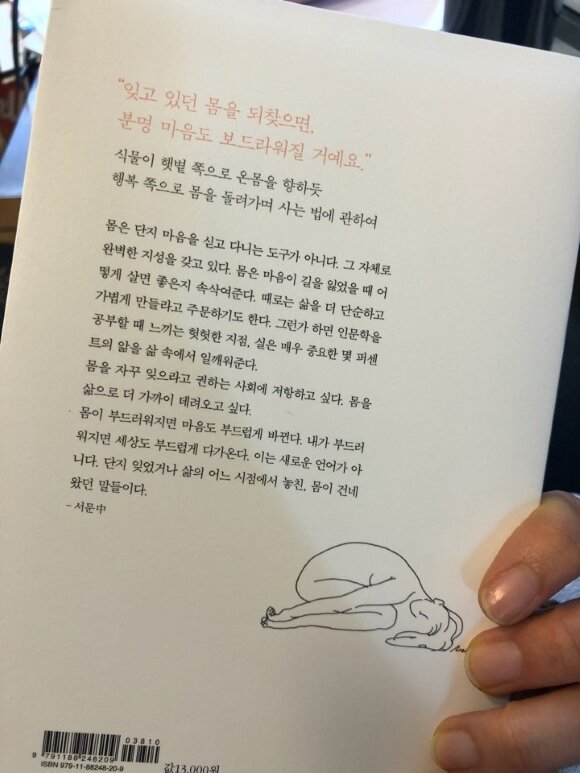 “잊고 있던 몸을 되찾으면,
분명 마음도 보드라워질 거예요.”
식물이 햇볕 쪽으로 온몸을 향하듯
행복 쪽으로 몸을 돌려가며 사는 법에 관하여
몸은 단지 마음을 싣고 다니는 도구가 아니다. 그 자체로
완벽한 지성을 갖고 있다. 몸은 마음이 길을 잃었을 때 어
떻게 살면 좋은지 속삭여준다. 때로는 삶을 더 단순하고
가볍게 만들라고 주문하기도 한다. 그런가 하면 인문학을
공부할 때 느끼는 헛헛한 지점, 실은 매우 중요한 몇 퍼센
트의 앎을 삶 속에서 일깨워준다.
몸을 자꾸 잊으라고 권하는 사회에 저항하고 싶다. 몸을
삶으로 더 가까이 데려오고 싶다.
몸이 부드러워지면 마음도 부드럽게 바뀐다. 내가 부드러
워지면 세상도 부드럽게 다가온다. 이는 새로운 언어가 아
니다. 단지 잊었거나 삶의 어느 시점에서 놓친, 몸이 건네
왔던 말들이다.
- 서문中
03810
9 791188 248209
ISBN 979-11-88248-20-9
값13,000원